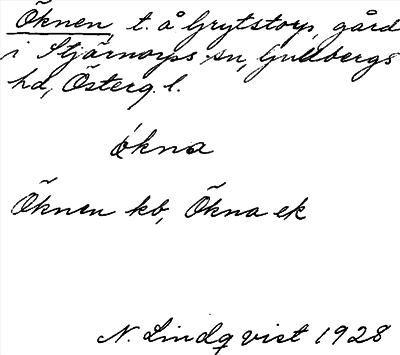 Öknen, t. å Grytstorp, gård
i Stjärnorps sn, Gullbergs
hd, Österg. l.
ökna
Öknen kb, Ökna ek
N. Lindqvist 1928